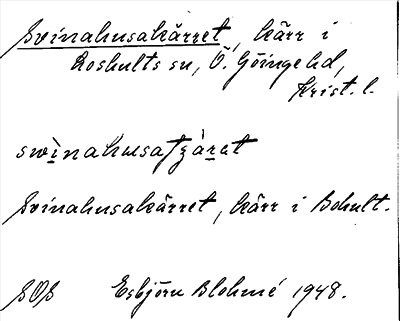 Svinahusakärret, kärr i
Roshults sn, Ö. Göinge hd,
Krist. l.
swìnahusaʃʒàrat
Svinahusakärret, kärr i Bohult.
SOS Esbjörn Blohmé 1948.